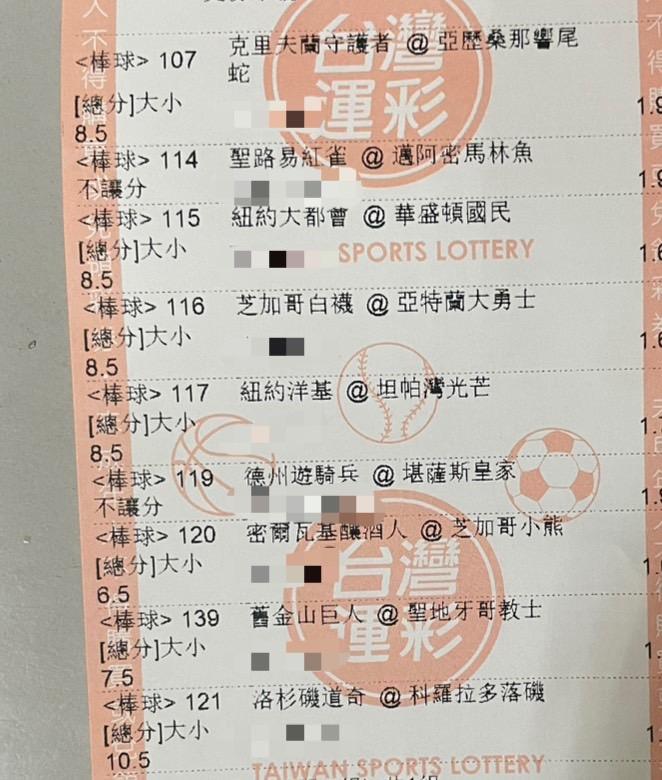 克里夫蘭守護者 @ 亞歷桑那響尾
<棒球> 107
蛇
[總分]大小
8.5
<棒球> 114 聖路易紅雀 @ 邁阿密馬林魚
不讓分
<棒球> 115 紐約大都會 @ 華盛頓國民
[總分]大小
SPORTS LOTTERY
8.5
<棒球> 116 芝加哥白襪 @ 亞特蘭大勇士
[總分]大小
8.5
<棒球> 117 紐約洋基 @ 坦帕灣光芒
[總分]大小
8.5
<棒球> 119 德州遊騎兵 @ 堪薩斯皇家
不讓分
<棒球> 120 密爾瓦基釀酒人 @ 芝加哥小熊
[總分]大小
6.5
<棒球> 139 舊金山巨人 @ 聖地牙哥教士
[總分]大小
7.5
<棒球> 121 洛杉磯道奇 @ 科羅拉多落磯
[總分]大小
10.5
TAIWAN SPORTS LOTTERY
台灣
運彩
台灣
運彩